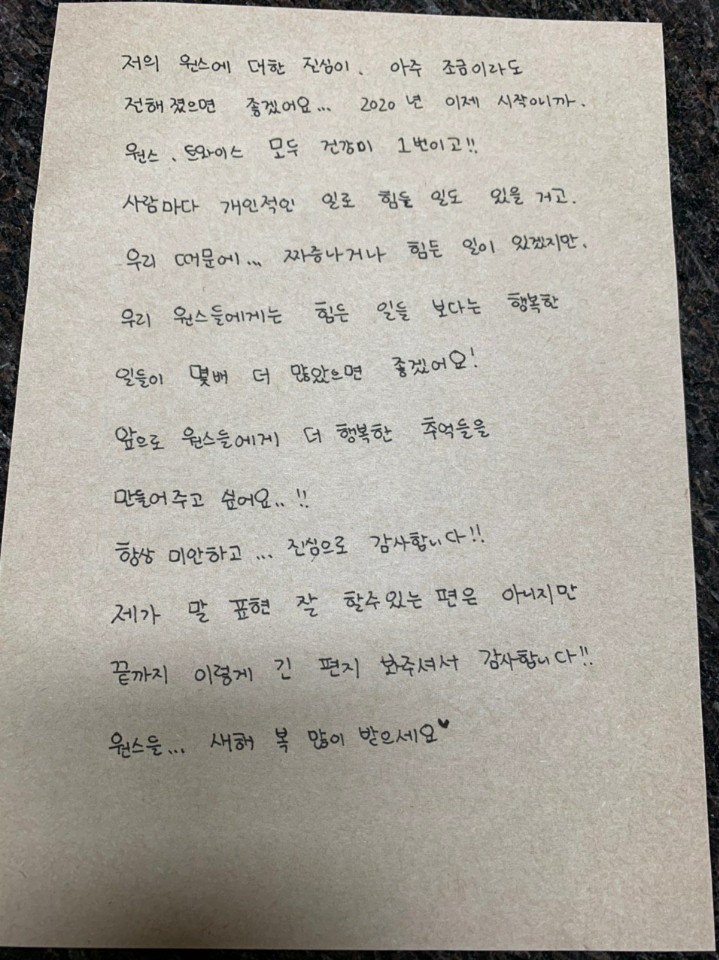 저의 원스에 대한 진심이, 아주 조금이라도
전해졌으면 좋겠어요... 2020년 이제 시작이니까,
원스, 트와이스 모두 건강이 1번이고!!
사람마다 개인적인 일로 힘들 일도 있을 거고,
우리 때문에... 짜증나거나 힘든 일이 있겠지만,
우리 원스들에게는 힘든 일들 보다는 행복한
일들이 몇배 더 많았으면 좋겠어요!
앞으로 원스들에게 더 행복한 추억들을
만들어주고 싶어요..!!
항상 미안하고... 진심으로 감사합니다!!
제가 말 표현 잘 할수있는 편은 아니지만
끝까지 이렇게 긴 편지 봐주셔서 감사합니다!!
원스들... 새해 복 많이 받으세요♥